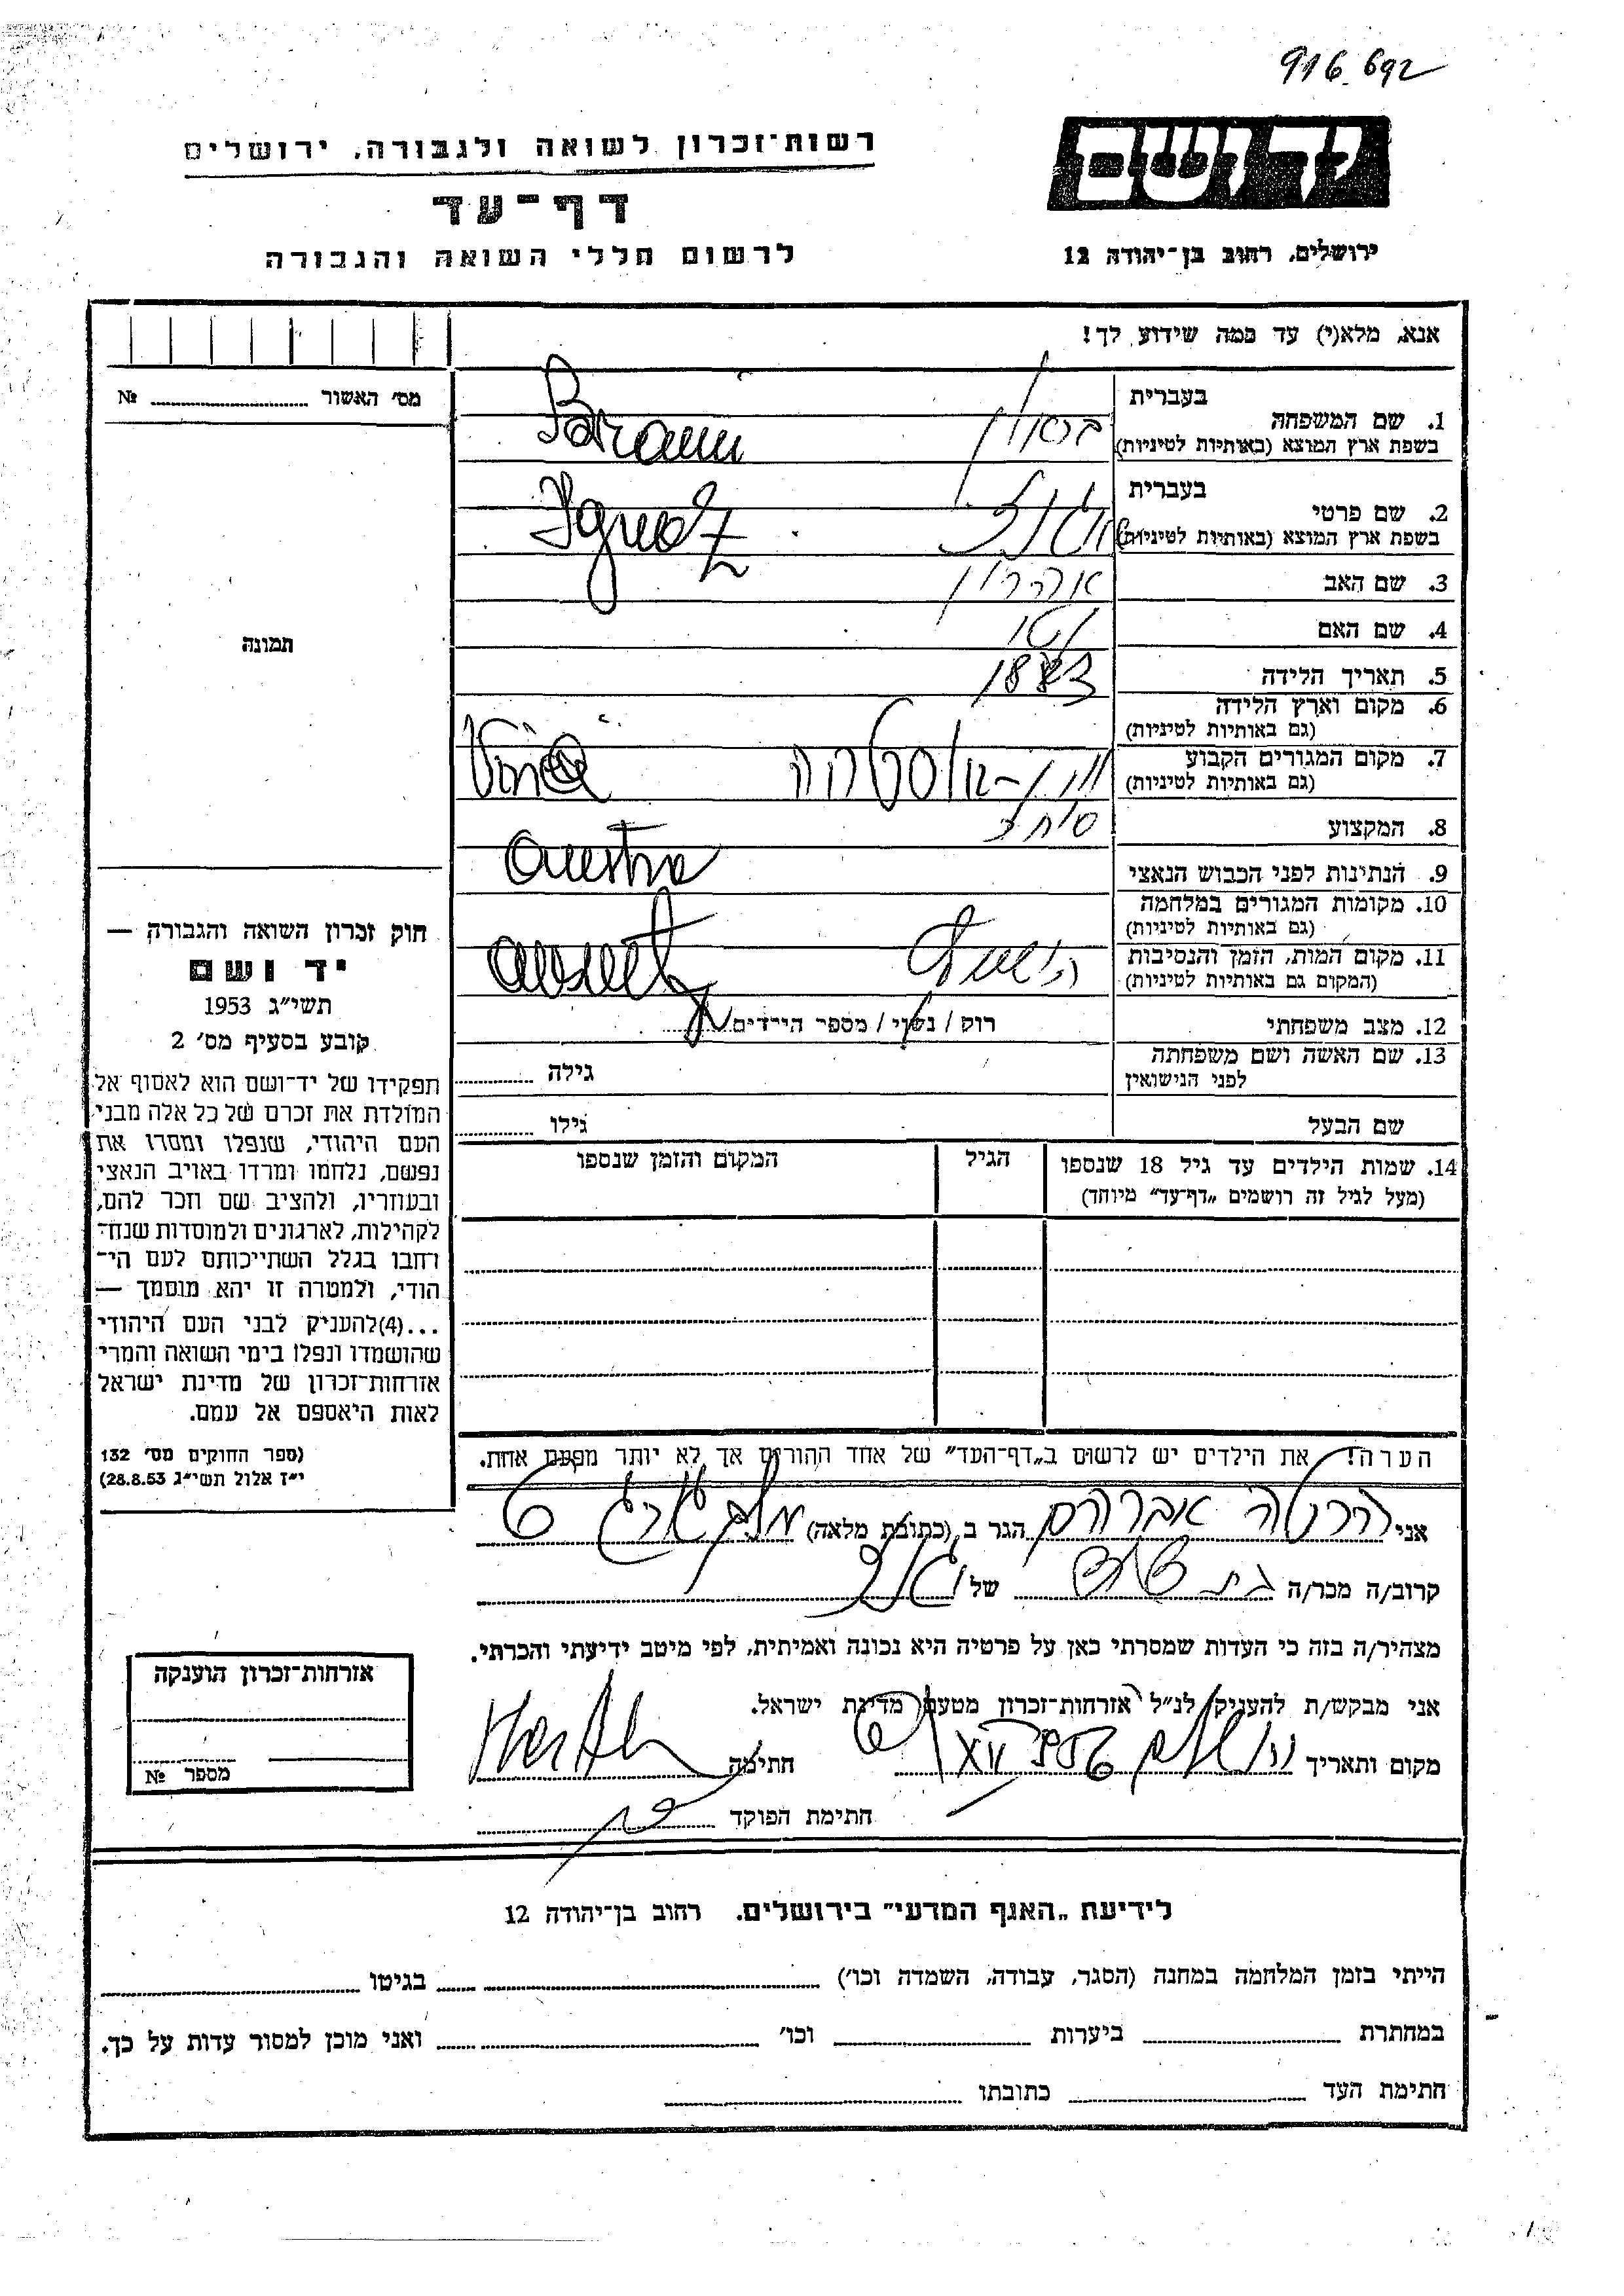 916.692
יד ושם
רשות־זכרון לשואה ולגבורה, ירושלים
דף־עד
ירושלים, רחוב בן־יהודה 12
לרשום חללי השואה והגבורה
אנא, מלא(י) עד כמה שידוע לך!
מס׳ האשור № 
בעברית
1. שם המשפחה
בשפת ארץ המוצא (באותיות לטיניות)
בראון
Braun
בעברית
2. שם פרטי
בשפת ארץ המוצא (באותיות לטיניות)
Ignatz
3. שם האב אהרון
4. שם האם
5. תאריך הלידה 1883
6. מקום וארץ הלידה
(גם באותיות לטיניות)
7. מקום המגורים הקבוע
(גם באותיות לטיניות)
וין-אוסטריה
8. המקצוע סוחר
9. הנתינות לפני הכבוש הנאצי Austria
10. מקומות המגורים במלחמה
(גם באותיות לטיניות)
11. מקום המות, הזמן והנסיבות
(המקום גם באותיות לטיניות)
12. מצב משפחתי רוק / נשוי / מספר הילדים
13. שם האשה ושם משפחתה
לפני הנישואין
גילה
שם הבעל גילו
14. שמות הילדים עד גיל 18 שנספו
(מעל לגיל זה רושמים „דף־עד” מיוחד)
הגיל
המקום והזמן שנספו
תמונה
חוק זכרון השואה והגבורה —
יד ושם
תשי״ג 1953
קובע בסעיף מס׳ 2
תפקידו של יד־ושם הוא לאסוף אל
המולדת את זכרם של כל אלה מבני
העם היהודי, שנפלו ומסרו את
נפשם, נלחמו ומרדו באויב הנאצי
ובעוזריו, ולהציב שם וזכר להם,
לקהילות, לארגונים ולמוסדות שנח־
רבו בגלל השתייכותם לעם הי־
הודי, ולמטרה זו יהא מוסמך —
...(4)להעניק לבני העם היהודי
שהושמדו ונפלו בימי השואה והמרי
אזרחות־זכרון של מדינת ישראל
לאות היאספם אל עמם.
(ספר החוקים מס׳ 132
י״ז אלול תשי״ג 28.8.53)
הערה! את הילדים יש לרשום ב„דף־העד” של אחד ההורים אך לא יותר מפעם אחת.
אני הרטה אברהם הגר ב (כתובת מלאה)
קרוב/ה מכר/ה בת דוד של
מצהיר/ה בזה כי העדות שמסרתי כאן על פרטיה היא נכונה ואמיתית, לפי מיטב ידיעתי והכרתי.
אני מבקש/ת להעניק לנ״ל אזרחות־זכרון מטעם מדינת ישראל.
מקום ותאריך ירושלים חתימה
חתימת הפוקד
אזרחות־זכרון הוענקה
מספר №
לידיעת „האגף המדעי” בירושלים. רחוב בן־יהודה 12
הייתי בזמן המלחמה במחנה (הסגר, עבודה, השמדה וכו׳) בגיטו
במחתרת ביערות וכו׳ ואני מוכן למסור עדות על כך.
חתימת העד כתובתו